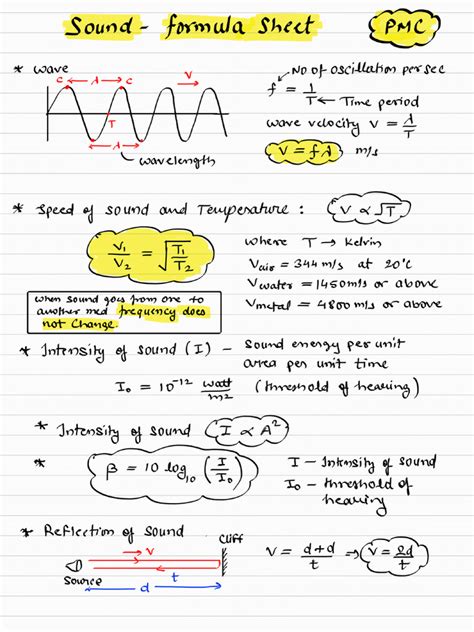 Sound - formula Sheet PMC
* wave
c λ c V
T
λ
wavelength
No of oscillation per sec
f = 1/T ← Time period
wave velocity V = λ/T
V = fλ m/s
* Speed of sound and Temperature : V ∝ √T
V₁/V₂ = √(T₁/T₂)
where T → Kelvin
Vair = 344 m/s at 20°C
Vwater = 1450 m/s or above
Vmetal = 4800 m/s or above
when sound goes from one to
another med frequency does
not change.
* Intensity of sound (I) - Sound energy per unit
area per unit time
I₀ = 10⁻¹² watt/m² (threshold of hearing)
* Intensity of sound I ∝ A²
* β = 10 log₁₀ (I/I₀)
I - Intensity of sound
I₀ - threshold of
hearing
* Reflection of sound
Cliff
V
Source
t
d
V = d+d/t ⇒ V = 2d/t